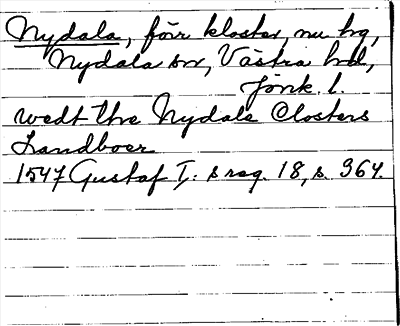 Nydala, förr kloster, nu hg,
Nydala sn, Västra hd,
Jönk. l.
wedt thre Nydala Closters
Landboer
1547 Gustaf I:s reg. 18, s. 364.